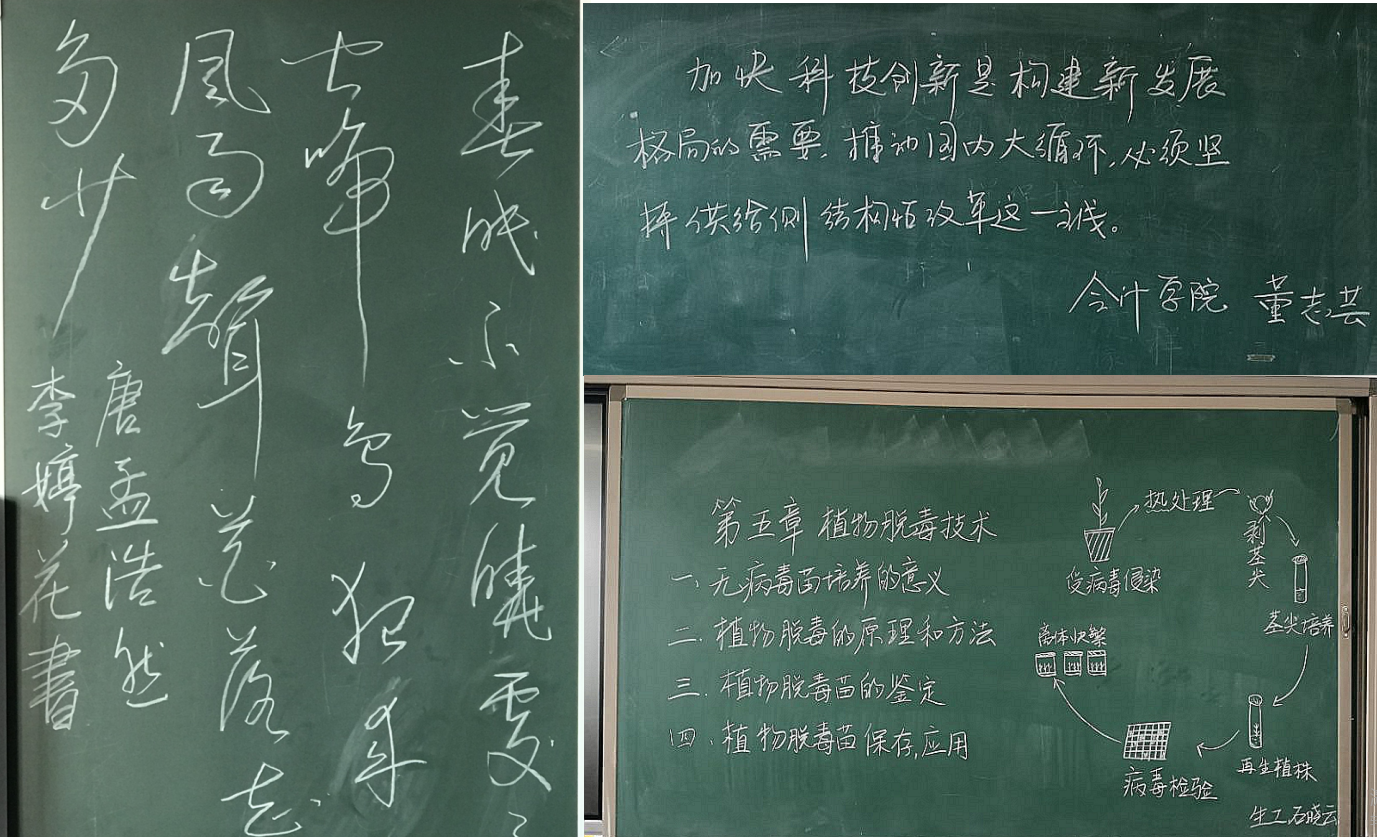 春眠不觉曉處々
闻啼鸟夜来
风雨聲花落知
多少
唐孟浩然
李婷花書
加快科技创新是构建新发展
格局的需要,推动国内大循环,必须坚
持供给侧结构性改革这一主线。
会计学院 董志芸
第五章 植物脱毒技术
一.无病毒苗培养的意义
二.植物脱毒的原理和方法
三.植物脱毒苗的鉴定
四.植物脱毒苗保存,应用
受病毒侵染
热处理
剥茎尖
茎尖培养
再生植株
病毒检验
离体快繁
生工 石晓云